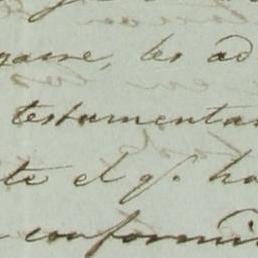 gasse, les ad
testamentar
te el q.e ha
conformi